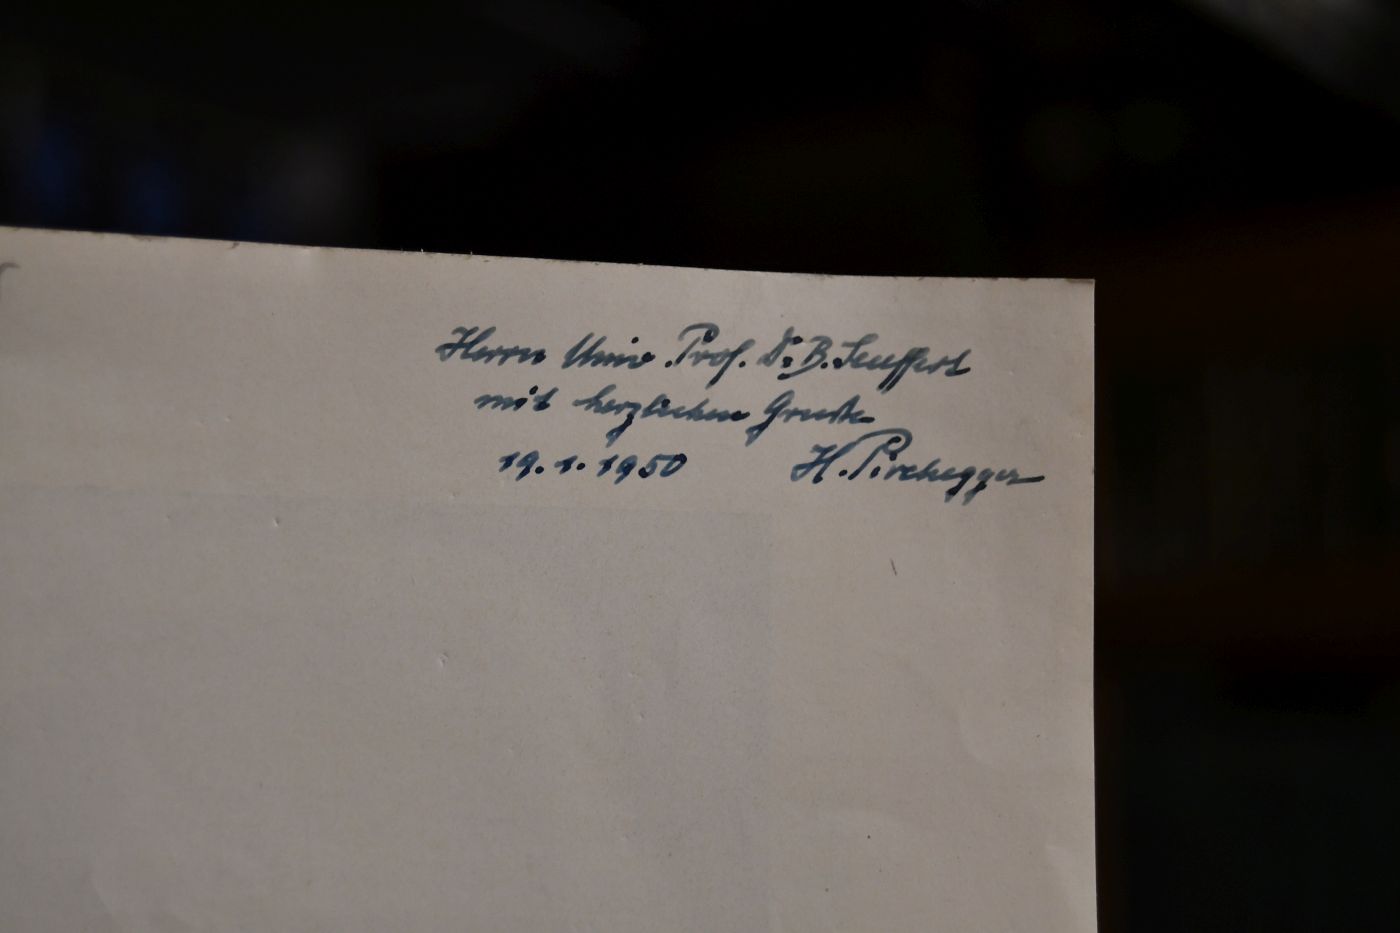 Herrn Univ. Prof. Dr. B. Seuffert
mit herzlichen Gruße
19. 1. 1950 H. Pirchegger